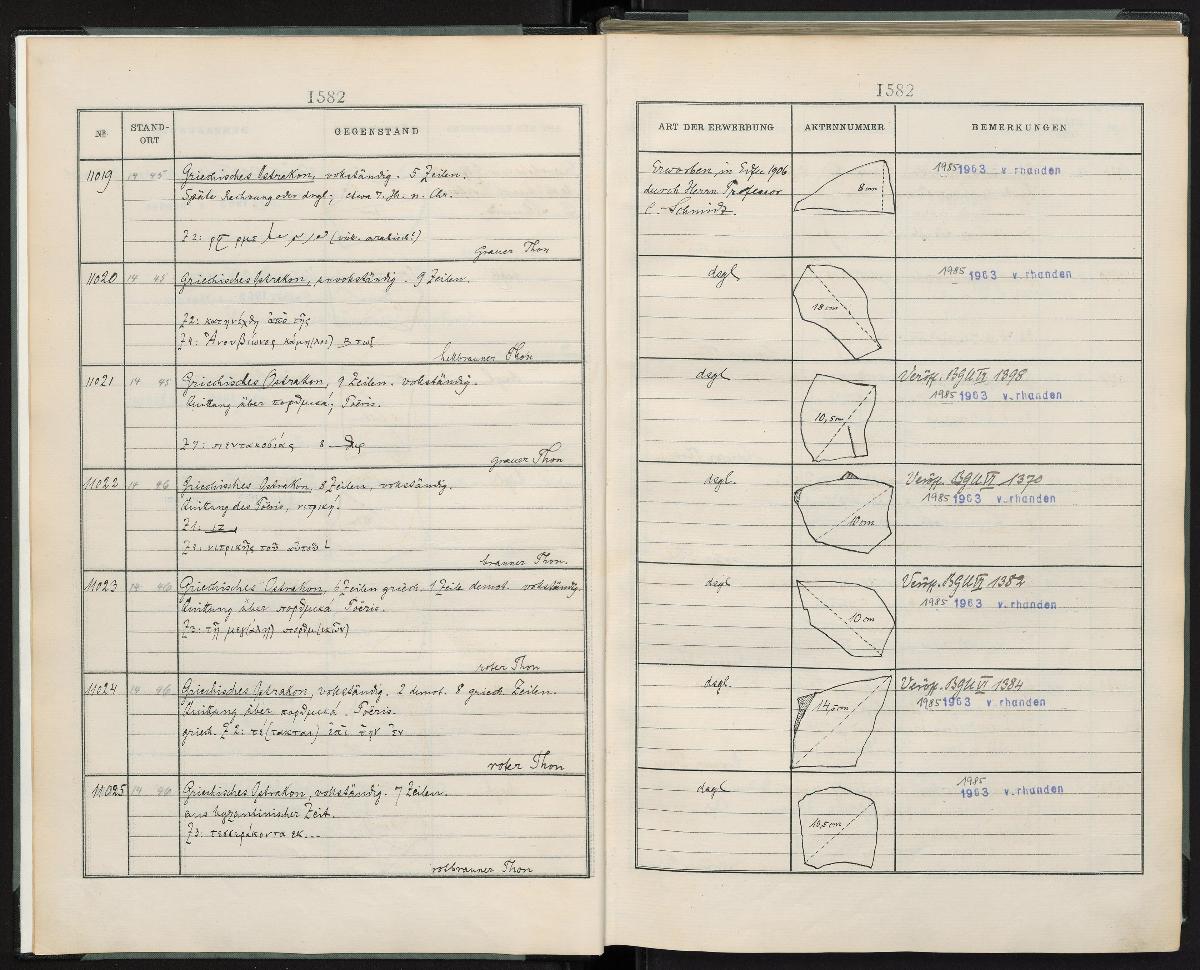 1582
№ STANDORT GEGENSTAND
11019 14 45 Griechisches Ostrakon, vollständig. 5 Zeilen.
Späte Rechnung oder drgl; etwa 7. Jh. n. Chr.
Z 2:
Grauer Thon
11020 14 45 Griechisches Ostrakon, unvollständig. 9 Zeilen.
Z2: κατηνέχθη ἀπὸ τῆς
Z4: Ἀνουβίωνος
hellbrauner Thon
11021 14 45 Griechisches Ostrakon, 9 Zeilen. vollständig.
Quittung über πορθμικά; Toëris.
Z7: πεντακοσίας
grauer Thon
11022 14 46 Griechisches Ostrakon, 8 Zeilen, vollständig.
Quittung des Toëris, νιτρική.
Z1: ιζ
νιτρικῆς τοῦ αὐτοῦ
brauner Thon.
11023 14 46 Griechisches Ostrakon, 6 Zeilen griech. 1 Zeile demot. vollständig.
Quittung über πορθμικά Toëris.
Z3: τῆ μεγ(άλη) πορθμ(ικῶν)
roter Thon
11024 14 46 Griechisches Ostrakon, vollständig. 2 demot. 8 griech Zeilen.
Quittung über πορθμικά. Toëris.
griech. Z 2: τέ(τακται) ἐπὶ τὴν ἐν
roter Thon
11025 14 46 Griechisches Ostrakon, vollständig. 7 Zeilen.
aus byzantinischer Zeit.
Z3: τεσσεράκοντα εκ...
rotbrauner Thon
1582
ART DER ERWERBUNG AKTENNUMMER BEMERKUNGEN
Erworben, in Edfu 1906
durch Herrn Professor
C. Schmidt.
8 cm
1985 1963 v.rhanden
dsgl
18 cm
1985 1963 v.rhanden
dsgl
10,5cm
Veröff. BGU VI 1398
1985 1963 v.rhanden
dsgl.
10 cm
Veröff. BGU VI 1370
1985 1963 v.rhanden
dsgl
10 cm
Veröff. BGU VI 1382
1985 1963 v.rhanden
dsgl.
14,5cm
Veröff. BGU VI 1384
1985 1963 v.rhanden
dsgl
10,5 cm
1985
1963 v.rhanden